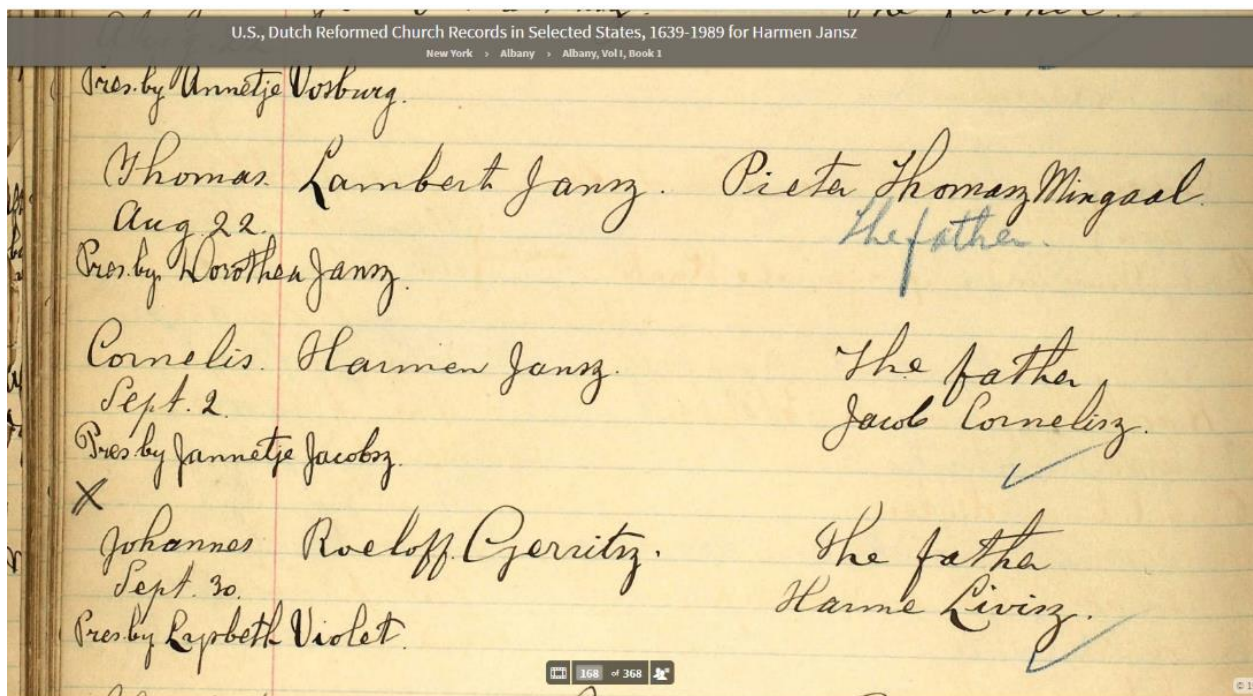 U.S., Dutch Reformed Church Records in Selected States, 1639-1989 for Harmen Jansz
New York > Albany > Albany, Vol I, Book 1
Pres. by Annetje Vosburg.
Thomas. Lambert Jansz. Pieter Thomasz Mingaal.
Aug. 22. The father.
Pres. by Dorothea Jansz.
Cornelis. Harmen Jansz. The father,
Sept. 2. Jacob Cornelisz.
Pres. by Jannetje Jacobsz.
X
Johannes Roeloff Gerritsz. The father
Sept. 30. Harme Livisz.
Pres. by Lysbeth Violet.
168 of 368